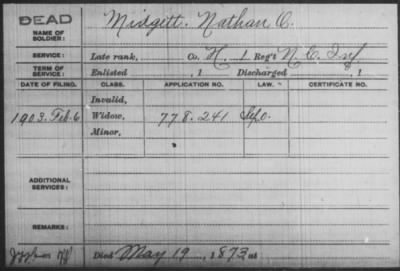 DEAD
NAME OF SOLDIER: Midgett. Nathan C.
SERVICE: Late rank, Co. H. 1 Reg't N. C. Inf
TERM OF SERVICE: Enlisted , 1 Discharged , 1
DATE OF FILING. CLASS. APPLICATION NO. LAW. CERTIFICATE NO.
Invalid,
1903. Feb. 6 Widow, 778.241
Minor,
ADDITIONAL SERVICES:
REMARKS:
Died May 19, 1873 at